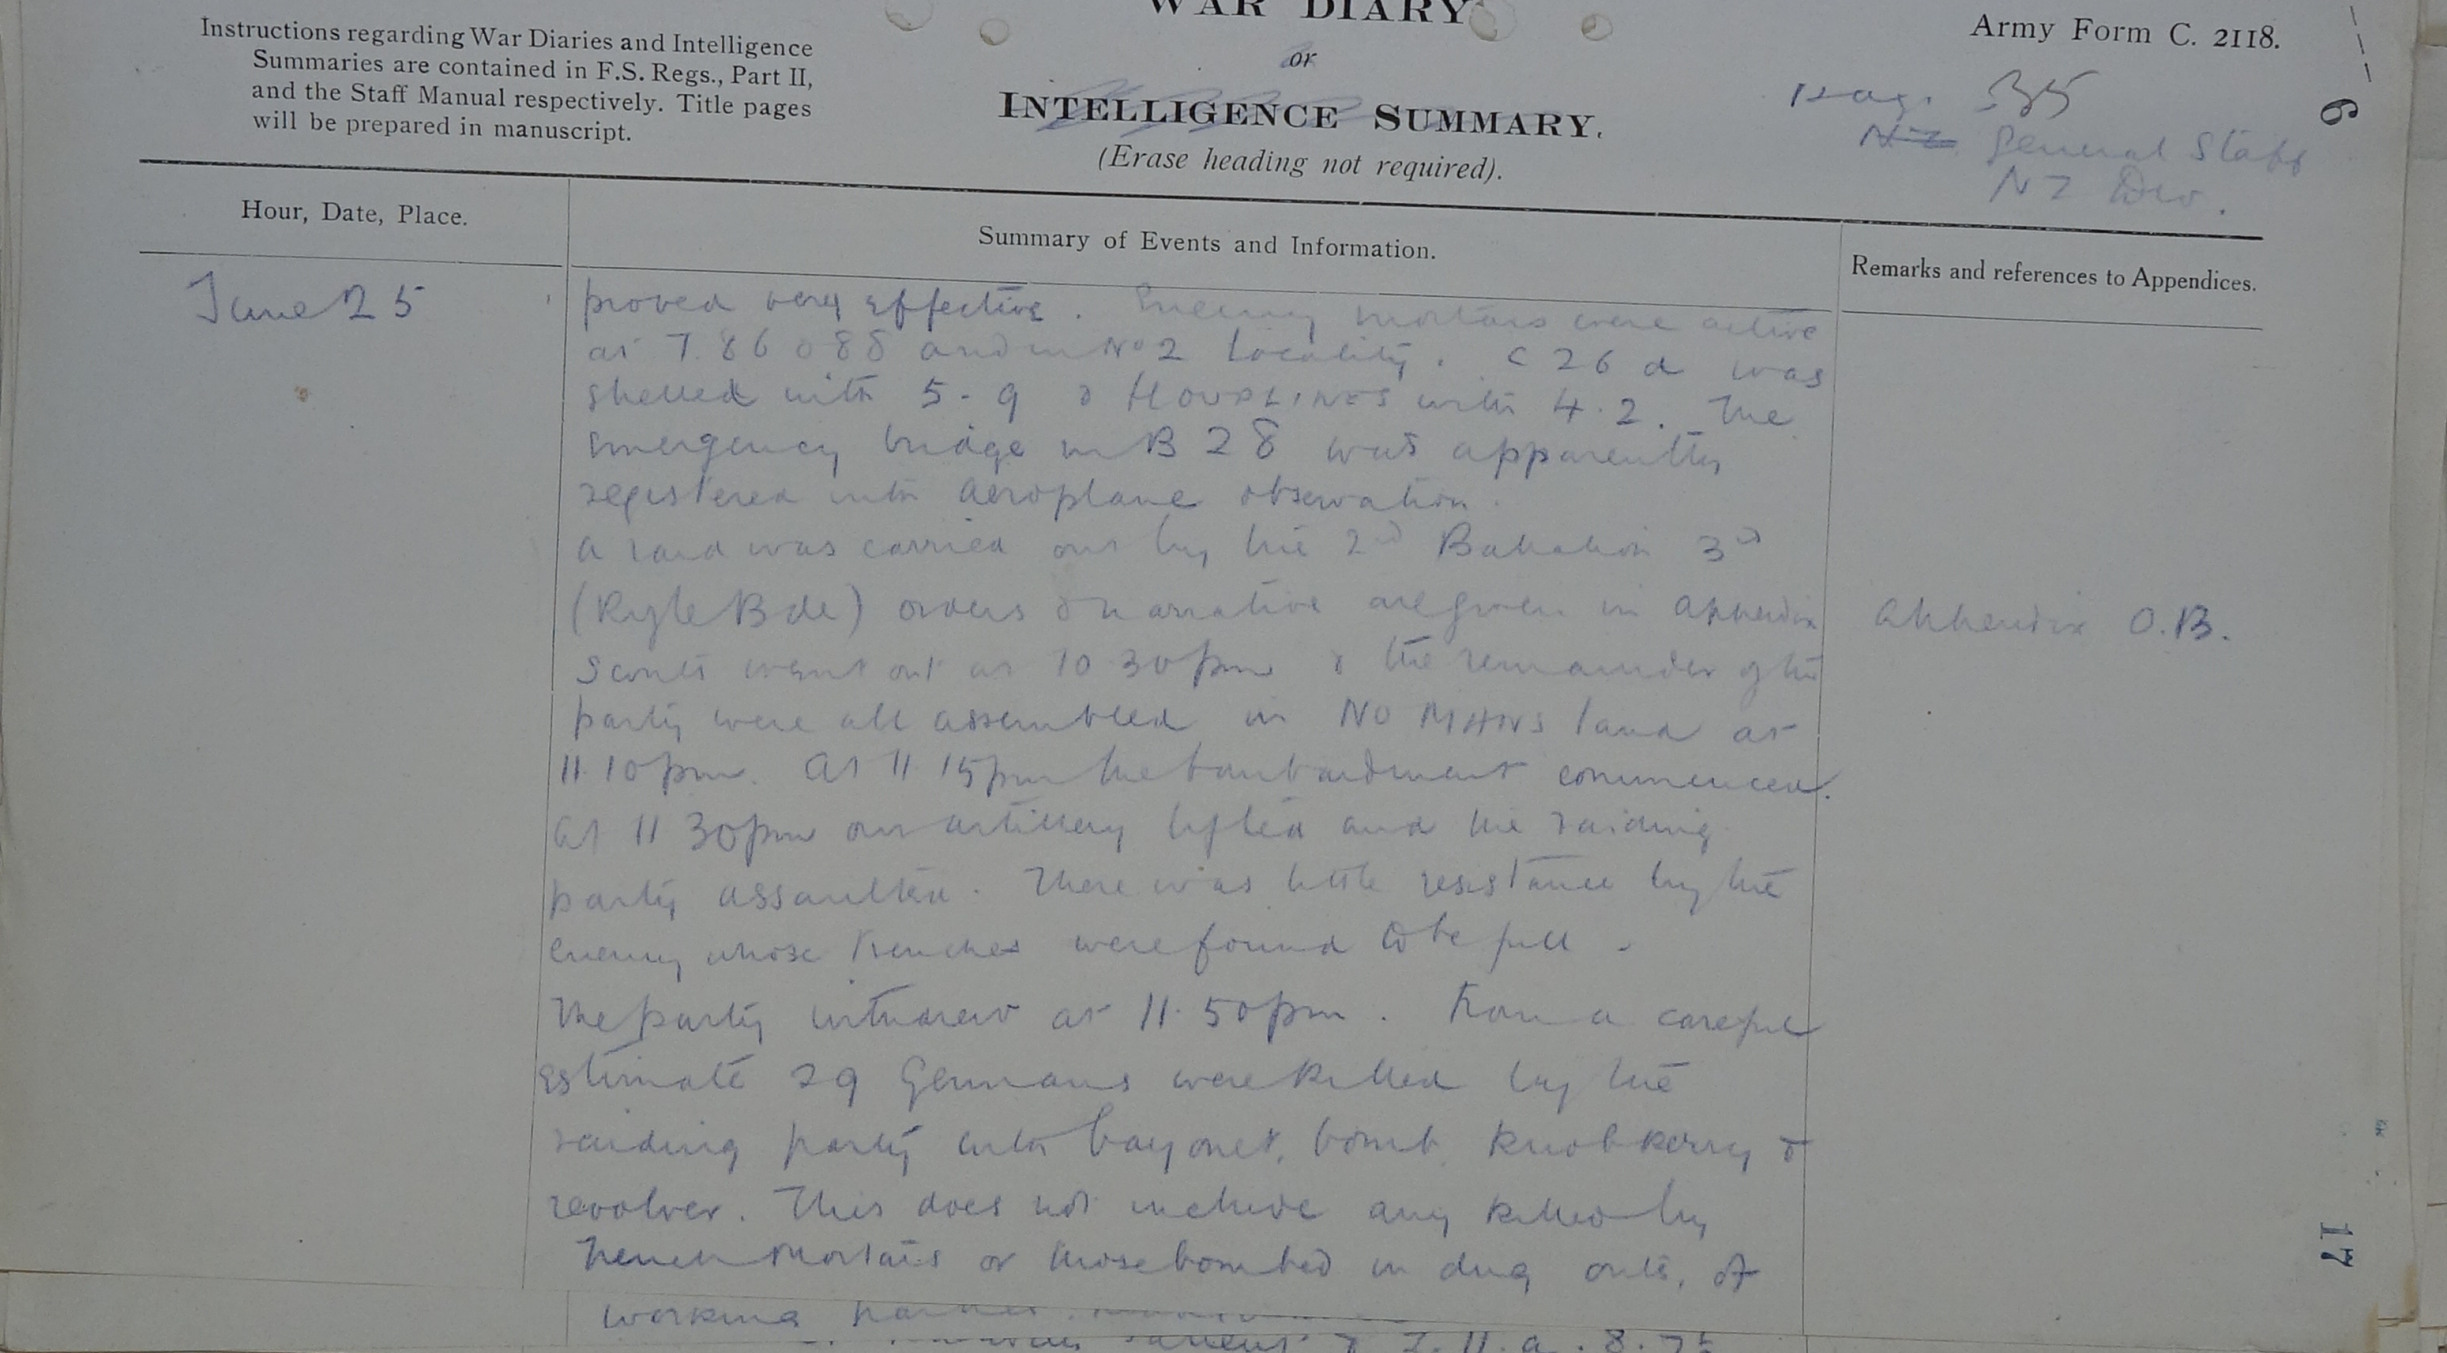 WAR DIARY
or
INTELLIGENCE SUMMARY.
(Erase heading not required).
Instructions regarding War Diaries and Intelligence
Summaries are contained in F.S. Regs., Part II,
and the Staff Manual respectively. Title pages
will be prepared in manuscript.
Army Form C. 2118.
Page 35
NZ General Staff
NZ Div.
6
Hour, Date, Place.
Summary of Events and Information.
Remarks and references to Appendices.
June 25
proved very effective. Enemy mortars were active
at T. 86 088 and in No 2 Locality. C 26 d was
shelled with 5-9 & HOUPLINES with 4.2. The
emergency bridge in B 28 was apparently
registered with aeroplane observation.
A raid was carried out by the 2nd Battalion 3rd
(Rifle Bde) orders & narrative are given in appendix
Appendix O.B.
Scouts went out at 10.30pm & the remainder of the
party were all assembled in NO MANS land at
11.10pm. At 11.15pm the bombardment commenced.
At 11 30pm our artillery lifted and the raiding
party assaulted. There was little resistance by the
enemy whose trenches were found to be full.
The party withdrew at 11.50pm. From a careful
estimate 29 Germans were killed by the
raiding party with bayonet, bomb, knobkerry &
revolver. This does not include any killed by
trench mortars or those bombed in dug outs. Of
17
working
8.